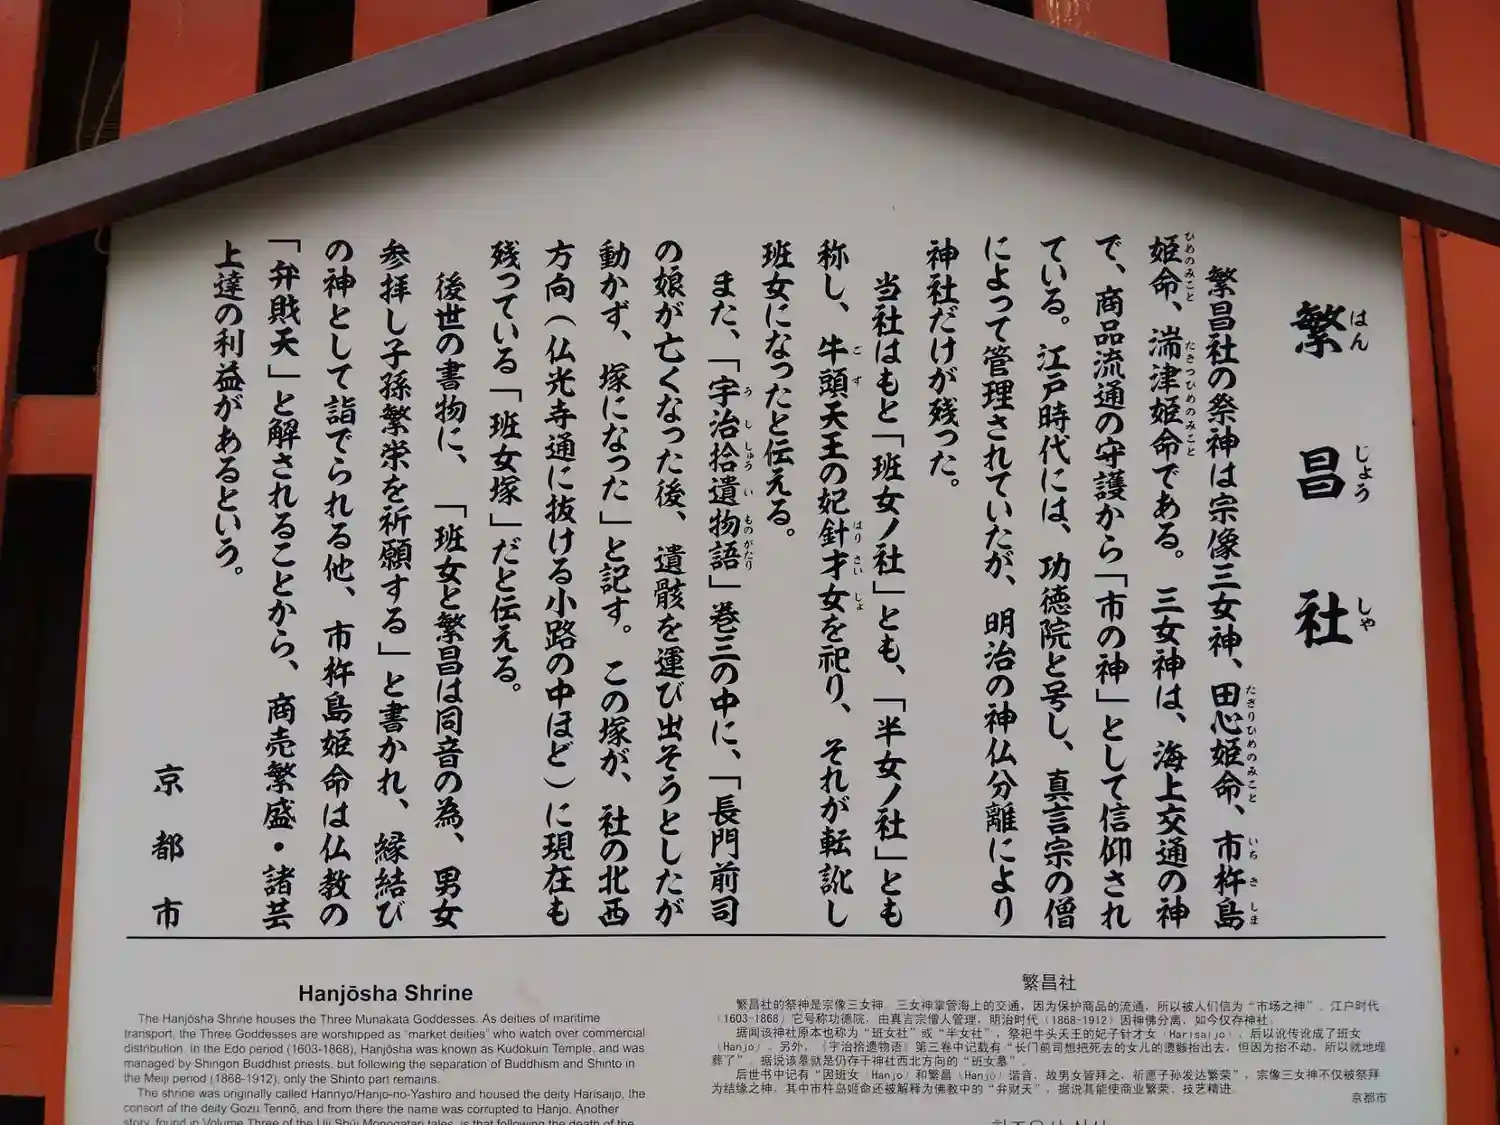 繁昌社
はんじょうしゃ
繁昌社の祭神は宗像三女神、田心姫命、市杵島
たぎりひめのみこと いちきしま
姫命、湍津姫命である。三女神は、海上交通の神
ひめのみこと たきつひめのみこと
で、商品流通の守護から「市の神」として信仰され
ている。江戸時代には、功徳院と号し、真言宗の僧
によって管理されていたが、明治の神仏分離により
神社だけが残った。
当社はもと「班女ノ社」とも、「半女ノ社」とも
称し、牛頭天王の妃針才女を祀り、それが転訛し
ごず はりさいしょ
班女になったと伝える。
また、「宇治拾遺物語」巻三の中に、「長門前司
うししゅういものがたり
の娘が亡くなった後、遺骸を運び出そうとしたが
動かず、塚になった」と記す。この塚が、社の北西
方向（仏光寺通に抜ける小路の中ほど）に現在も
残っている「班女塚」だと伝える。
後世の書物に、「班女と繁昌は同音の為、男女
参拝し子孫繁栄を祈願する」と書かれ、縁結び
の神として詣でられる他、市杵島姫命は仏教の
「弁財天」と解されることから、商売繁盛・諸芸
上達の利益があるという。
京都市
Hanjōsha Shrine
The Hanjōsha Shrine houses the Three Munakata Goddesses. As deities of maritime
transport, the Three Goddesses are worshipped as "market deities" who watch over commercial
distribution. In the Edo period (1603-1868), Hanjōsha was known as Kudokuin Temple, and was
managed by Shingon Buddhist priests, but following the separation of Buddhism and Shinto in
the Meiji period (1868-1912), only the Shinto part remains.
The shrine was originally called Hannyo/Hanjo-no-Yashiro and housed the deity Harisaijo, the
consort of the deity Gozu Tennō, and from there the name was corrupted to Hanjo. Another
story, found in Volume Three of the Uji Shūi Monogatari tales, is that following the death of the
繁昌社
繁昌社的祭神是宗像三女神。三女神掌管海上的交通，因为保护商品的流通，所以被人们信为“市场之神”。江户时代
（1603-1868）它号称功德院，由真言宗僧人管理，明治时代（1868-1912）因神佛分离，如今仅存神社。
据闻该神社原本也称为“班女社”或“半女社”，祭祀牛头天王的妃子针才女（Harisaijo），后以讹传讹成了班女
（Hanjo）。另外，《宇治拾遗物语》第三卷中记载有“长门前司想把死去的女儿的遗骸抬出去，但因为抬不动，所以就地埋
葬了”。据说该墓就是仍存于神社西北方向的“班女墓”。
后世书中记有“因班女（Hanjo）和繁昌（Hanjō）谐音，故男女皆拜之，祈愿子孙发达繁荣”，宗像三女神不仅被祭拜
为结缘之神，其中市杵岛姬命还被解释为佛教中的“弁财天”，据说其能使商业繁荣、技艺精进。
京都市